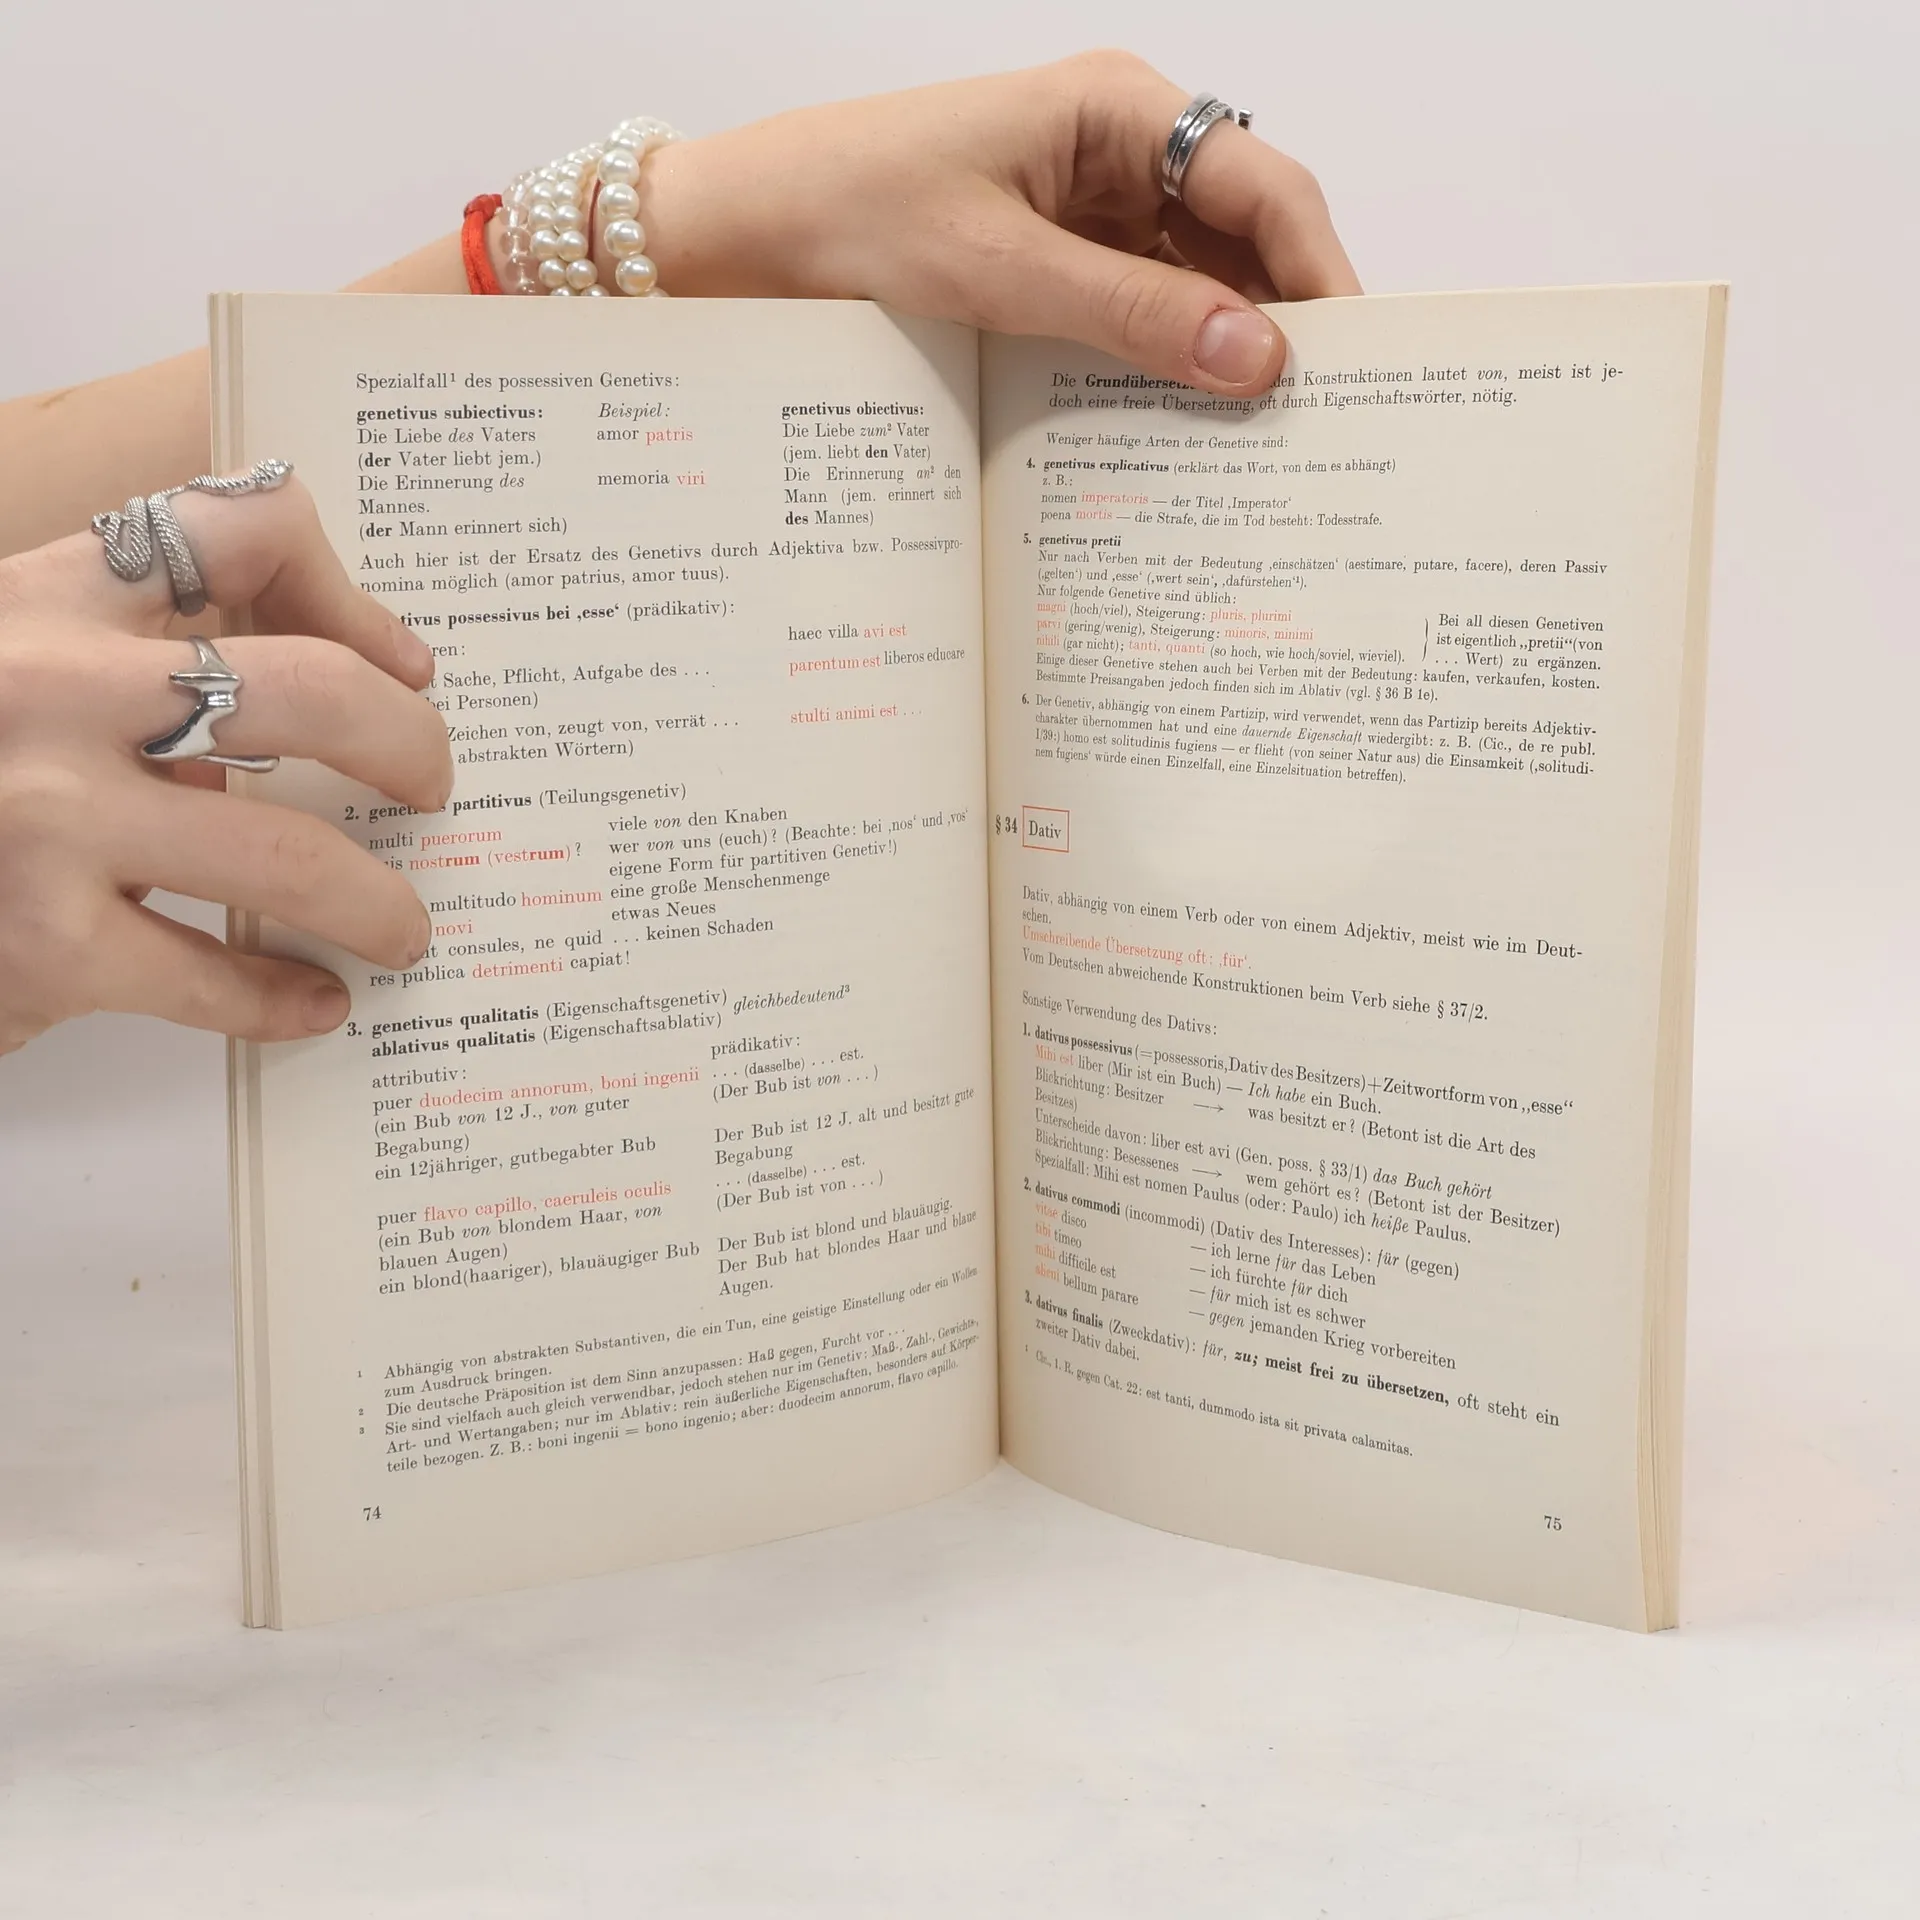 Spezialfall¹ des possessiven Genetivs:
genetivus subiectivus: Beispiel: genetivus obiectivus:
Die Liebe des Vaters amor patris Die Liebe zum² Vater
(der Vater liebt jem.) (jem. liebt den Vater)
Die Erinnerung des memoria viri Die Erinnerung an² den
Mannes. Mann (jem. erinnert sich
(der Mann erinnert sich) des Mannes)
Auch hier ist der Ersatz des Genetivs durch Adjektiva bzw. Possessivpro-
nomina möglich (amor patrius, amor tuus).
possessivus bei ‚esse‘ (prädikativ):
haec villa avi est
Sache, Pflicht, Aufgabe des ... parentum est liberos educare
bei Personen)
Zeichen von, zeugt von, verrät ... stulti animi est ...
abstrakten Wörtern)
2. partitivus (Teilungsgenetiv)
multi puerorum viele von den Knaben
nostrum (vestrum)? wer von uns (euch)? (Beachte: bei ‚nos‘ und ‚vos‘
eigene Form für partitiven Genetiv!)
multitudo hominum eine große Menschenmenge
novi etwas Neues
consules, ne quid ... keinen Schaden
res publica detrimenti capiat!
3. genetivus qualitatis (Eigenschaftsgenetiv) gleichbedeutend³
ablativus qualitatis (Eigenschaftsablativ)
attributiv: prädikativ:
puer duodecim annorum, boni ingenii ... (dasselbe) ... est.
(ein Bub von 12 J., von guter (Der Bub ist von ...)
Begabung)
ein 12jähriger, gutbegabter Bub Der Bub ist 12 J. alt und besitzt gute
Begabung
puer flavo capillo, caeruleis oculis ... (dasselbe) ... est.
(ein Bub von blondem Haar, von (Der Bub ist von ...)
blauen Augen)
ein blond(haariger), blauäugiger Bub Der Bub ist blond und blauäugig.
Der Bub hat blondes Haar und blaue
Augen.
1 Abhängig von abstrakten Substantiven, die ein Tun, eine geistige Einstellung oder ein Wollen
zum Ausdruck bringen.
2 Die deutsche Präposition ist dem Sinn anzupassen: Haß gegen, Furcht vor ...
3 Sie sind vielfach auch gleich verwendbar, jedoch stehen nur im Genetiv: Maß-, Zahl-, Gewichts-,
Art- und Wertangaben; nur im Ablativ: rein äußerliche Eigenschaften, besonders auf Körper-
teile bezogen. Z. B.: boni ingenii = bono ingenio; aber: duodecim annorum, flavo capillo.
74
Die Konstruktionen lautet von, meist ist je-
doch eine freie Übersetzung, oft durch Eigenschaftswörter, nötig.
Weniger häufige Arten der Genetive sind:
4. genetivus explicativus (erklärt das Wort, von dem es abhängt)
z. B.:
nomen imperatoris — der Titel ‚Imperator‘
poena mortis — die Strafe, die im Tod besteht: Todesstrafe.
5. genetivus pretii
Nur nach Verben mit der Bedeutung ‚einschätzen‘ (aestimare, putare, facere), deren Passiv
(‚gelten‘) und ‚esse‘ (‚wert sein‘, ‚dafürstehen‘¹).
Nur folgende Genetive sind üblich:
magni (hoch/viel), Steigerung: pluris, plurimi Bei all diesen Genetiven
parvi (gering/wenig), Steigerung: minoris, minimi ist eigentlich „pretii“(von
nihili (gar nicht); tanti, quanti (so hoch, wie hoch/soviel, wieviel). ... Wert) zu ergänzen.
Einige dieser Genetive stehen auch bei Verben mit der Bedeutung: kaufen, verkaufen, kosten.
Bestimmte Preisangaben jedoch finden sich im Ablativ (vgl. § 36 B 1e).
6. Der Genetiv, abhängig von einem Partizip, wird verwendet, wenn das Partizip bereits Adjektiv-
charakter übernommen hat und eine dauernde Eigenschaft wiedergibt: z. B. (Cic., de re publ.
1/39:) homo est solitudinis fugiens — er flieht (von seiner Natur aus) die Einsamkeit (‚solitudi-
nem fugiens‘ würde einen Einzelfall, eine Einzelsituation betreffen).
§ 34 Dativ
Dativ, abhängig von einem Verb oder von einem Adjektiv, meist wie im Deut-
schen.
Umschreibende Übersetzung oft: ‚für‘.
Vom Deutschen abweichende Konstruktionen beim Verb siehe § 37/2.
Sonstige Verwendung des Dativs:
1. dativus possessivus (=possessoris, Dativ des Besitzers)+Zeitwortform von „esse“
Mihi est liber (Mir ist ein Buch) — Ich habe ein Buch.
Blickrichtung: Besitzer → was besitzt er? (Betont ist die Art des
Besitzes)
Unterscheide davon: liber est avi (Gen. poss. § 33/1) das Buch gehört
Blickrichtung: Besessenes → wem gehört es? (Betont ist der Besitzer)
Spezialfall: Mihi est nomen Paulus (oder: Paulo) ich heiße Paulus.
2. dativus commodi (incommodi) (Dativ des Interesses): für (gegen)
vitae disco — ich lerne für das Leben
tibi timeo — ich fürchte für dich
mihi difficile est — für mich ist es schwer
alicui bellum parare — gegen jemanden Krieg vorbereiten
3. dativus finalis (Zweckdativ): für, zu; meist frei zu übersetzen, oft steht ein
zweiter Dativ dabei.
¹ Cic., 1. R. gegen Cat. 22: est tanti, dummodo ista sit privata calamitas.
75